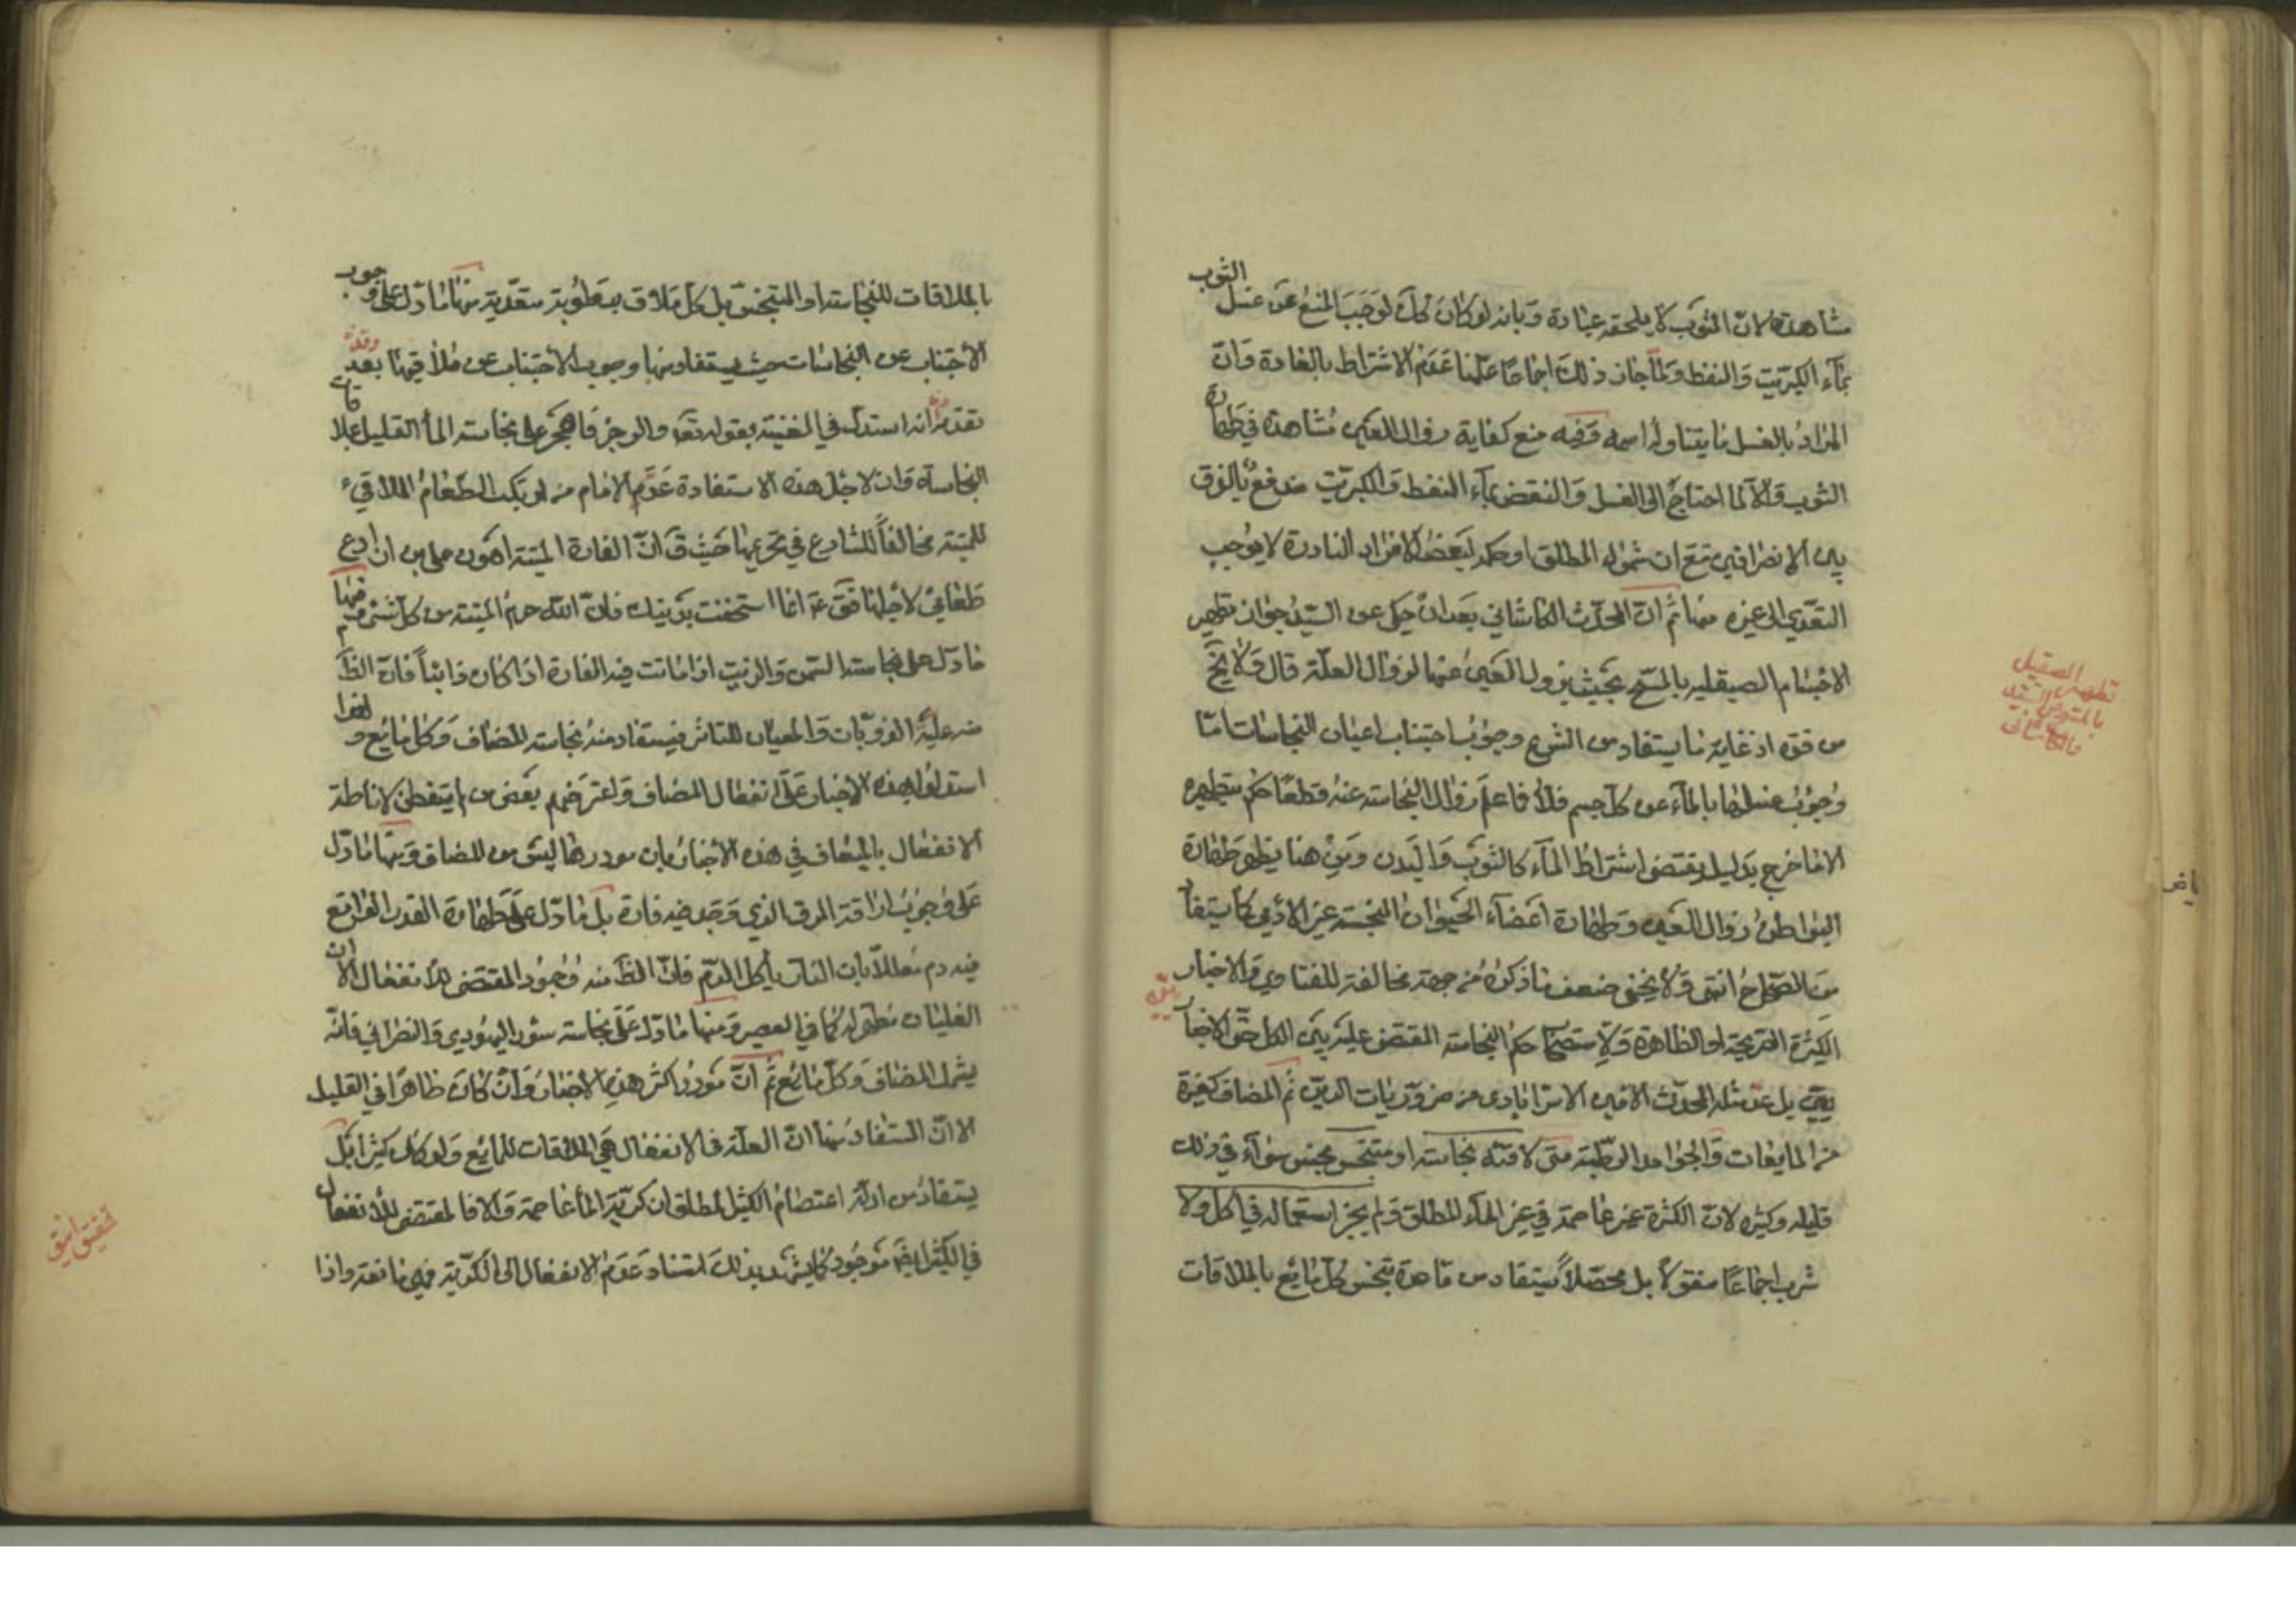 مشاهدة لانّ الثوب لا يلحقه عبادة وبانه لو كان كك لوجب المنع عن غسل الثوب
بماء الكبريت والنفط ولما جاز ذلك اجماعا علمنا عدم الاشتراط بالعادة وانّ
المراد بالغسل ما يتناوله اسمه وفيه منع كفاية زوال العين مشاهدة في طهارة
الثوب والا لما احتاج الى الغسل والنقض بماء النفط والكبريت مندفع بالفرق
بين الانصرافين مع ان شمول المطلق او حكمه لبعض الافراد النادرة لا يوجب
التعدي الى غيره منها ثم انّ المحدّث الكاشاني بعد ان حكى عن السيّد جواز تطهير
الاجسام الصيقلية بالمسح بحيث يزول العين عنها لزوال العلّة قال ولا يخ
من قوة اذ غاية ما يستفاد من الشرع وجوب اجتناب اعيان النجاسات امّا
وجوب غسلها بالماء عن كل جسم فلا فما علم زوال النجاسة عنه قطعًا حكم بتطهيره
الا ما خرج بدليل يقتضي اشتراط الماء كالثوب والبدن ومن هنا يظهر طهارة
البواطن بزوال العين وطهارة اعضاء الحيوان النجسة غير الآدمي كما يستفا
من الصحاح انتهى ولا يخفى ضعف ما ذكره من جهة مخالفته للفتاوي والاخبار
الكثيرة الصريحة او الظاهرة ولاستصحاب حكم النجاسة المقتضي عليه بين الكل حتى الاخبا
ريين بل عدّ مثله المحدث الامين الاسترابادى من ضروريات الدين ثم المضاف كغيره
من المايعات والجوامد الرطبة متى لاقته نجاسة او متنجس نجس سواء في ذلك
قليله وكثيره لانّ الكثرة غير عاصمة في غير الماء المطلق ولم يجز استعماله في اكل ولا
شرب اجماعًا منقولا بل محصّلاً يستفاد من قاعدة تنجس كل مايع بالملاقات
تطهير الصيقل
بالمسح عن السيد
والكاشاني
بالملاقات للنجاسة او المتنجس بل كل ملاق برطوبة متعدّية منها ما دل على وجوب
الاجتناب عن النجاسات حيث يستفاد منها وجوب الاجتناب عن ملاقيها بعد وقد
تقدم انه استدل في الغنية بقوله تعه والرجز فاهجر على نجاسة الماء القليل بملاقات
النجاسة وان لاجل هذه الاستفادة عدّ الامام من لم يترك الطعام الملاقي
للميتة مخالفاً للشارع في تحريمها حيث ق انّ الفارة الميتة اهون علي من ان ادع
طعامي لاجلها فق ع انما استخففت بدينك فان الله حرم الميتة من كل شئ ومنها
ما دل على نجاسة السمن والزيت اذا ماتت فيه الفارة اذا كان ذائباً فان الظ
منه علية الذوبان والميعان للتاثر فيستفاد منه نجاسة المضاف وكل مايع ولهذا
استدلوا بهذه الاخبار على انفعال المضاف واعترضهم بعض من لم يتفطن لاناطة
الانفعال بالميعان في هذه الاخبار بان موردها ليس من المضاف ومنها ما دل
على وجوب اراقة المرق الذي وجد فيه فارة بل ما دل على طهارة القدر الواقع
فيه دم معللا بان النار يأكل الدم فانّ الظ منه وجود المقتضي للانفعال الا ان
الغليان مطهر له كما في العصير ومنها ما دل على نجاسة سؤر اليهودي والنصراني فانّه
يشمل المضاف وكل مايع ثم انّ مورد اكثر هذه الاخبار وان كان ظاهرًا في القليل
الا ان المستفاد منها انّ العلّة في الانفعال هي الملاقات للمايع ولو كان كثيرا بل
يستفاد من ادلة اعتصام الكثير المطلق ان كرّية الماء عاصمة والا فالمقتضي للانفعال
في الكثير ايضه موجود كما يشهد بذلك استناد عدم الانفعال الى الكرّية فهي مانعة واذا
تحقيق انيق